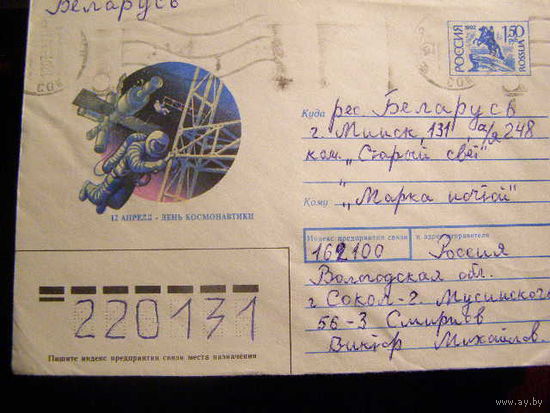 Беларусь
РОССИЯ 1992 1.50 ROSSIJA
Куда рес. Беларусь
г. Минск 131 а/я 248
ком. „Старый свет"
Кому „Марка почтой"
12 АПРЕЛЯ - ДЕНЬ КОСМОНАВТИКИ
Индекс предприятия связи и адрес отправителя
162100 Россия
Вологодская обл.
г. Сокол-2. Мусинского
56-3 Смирнов
Виктор Михайлов.
220131
Пишите индекс предприятия связи места назначения
www.ay.by